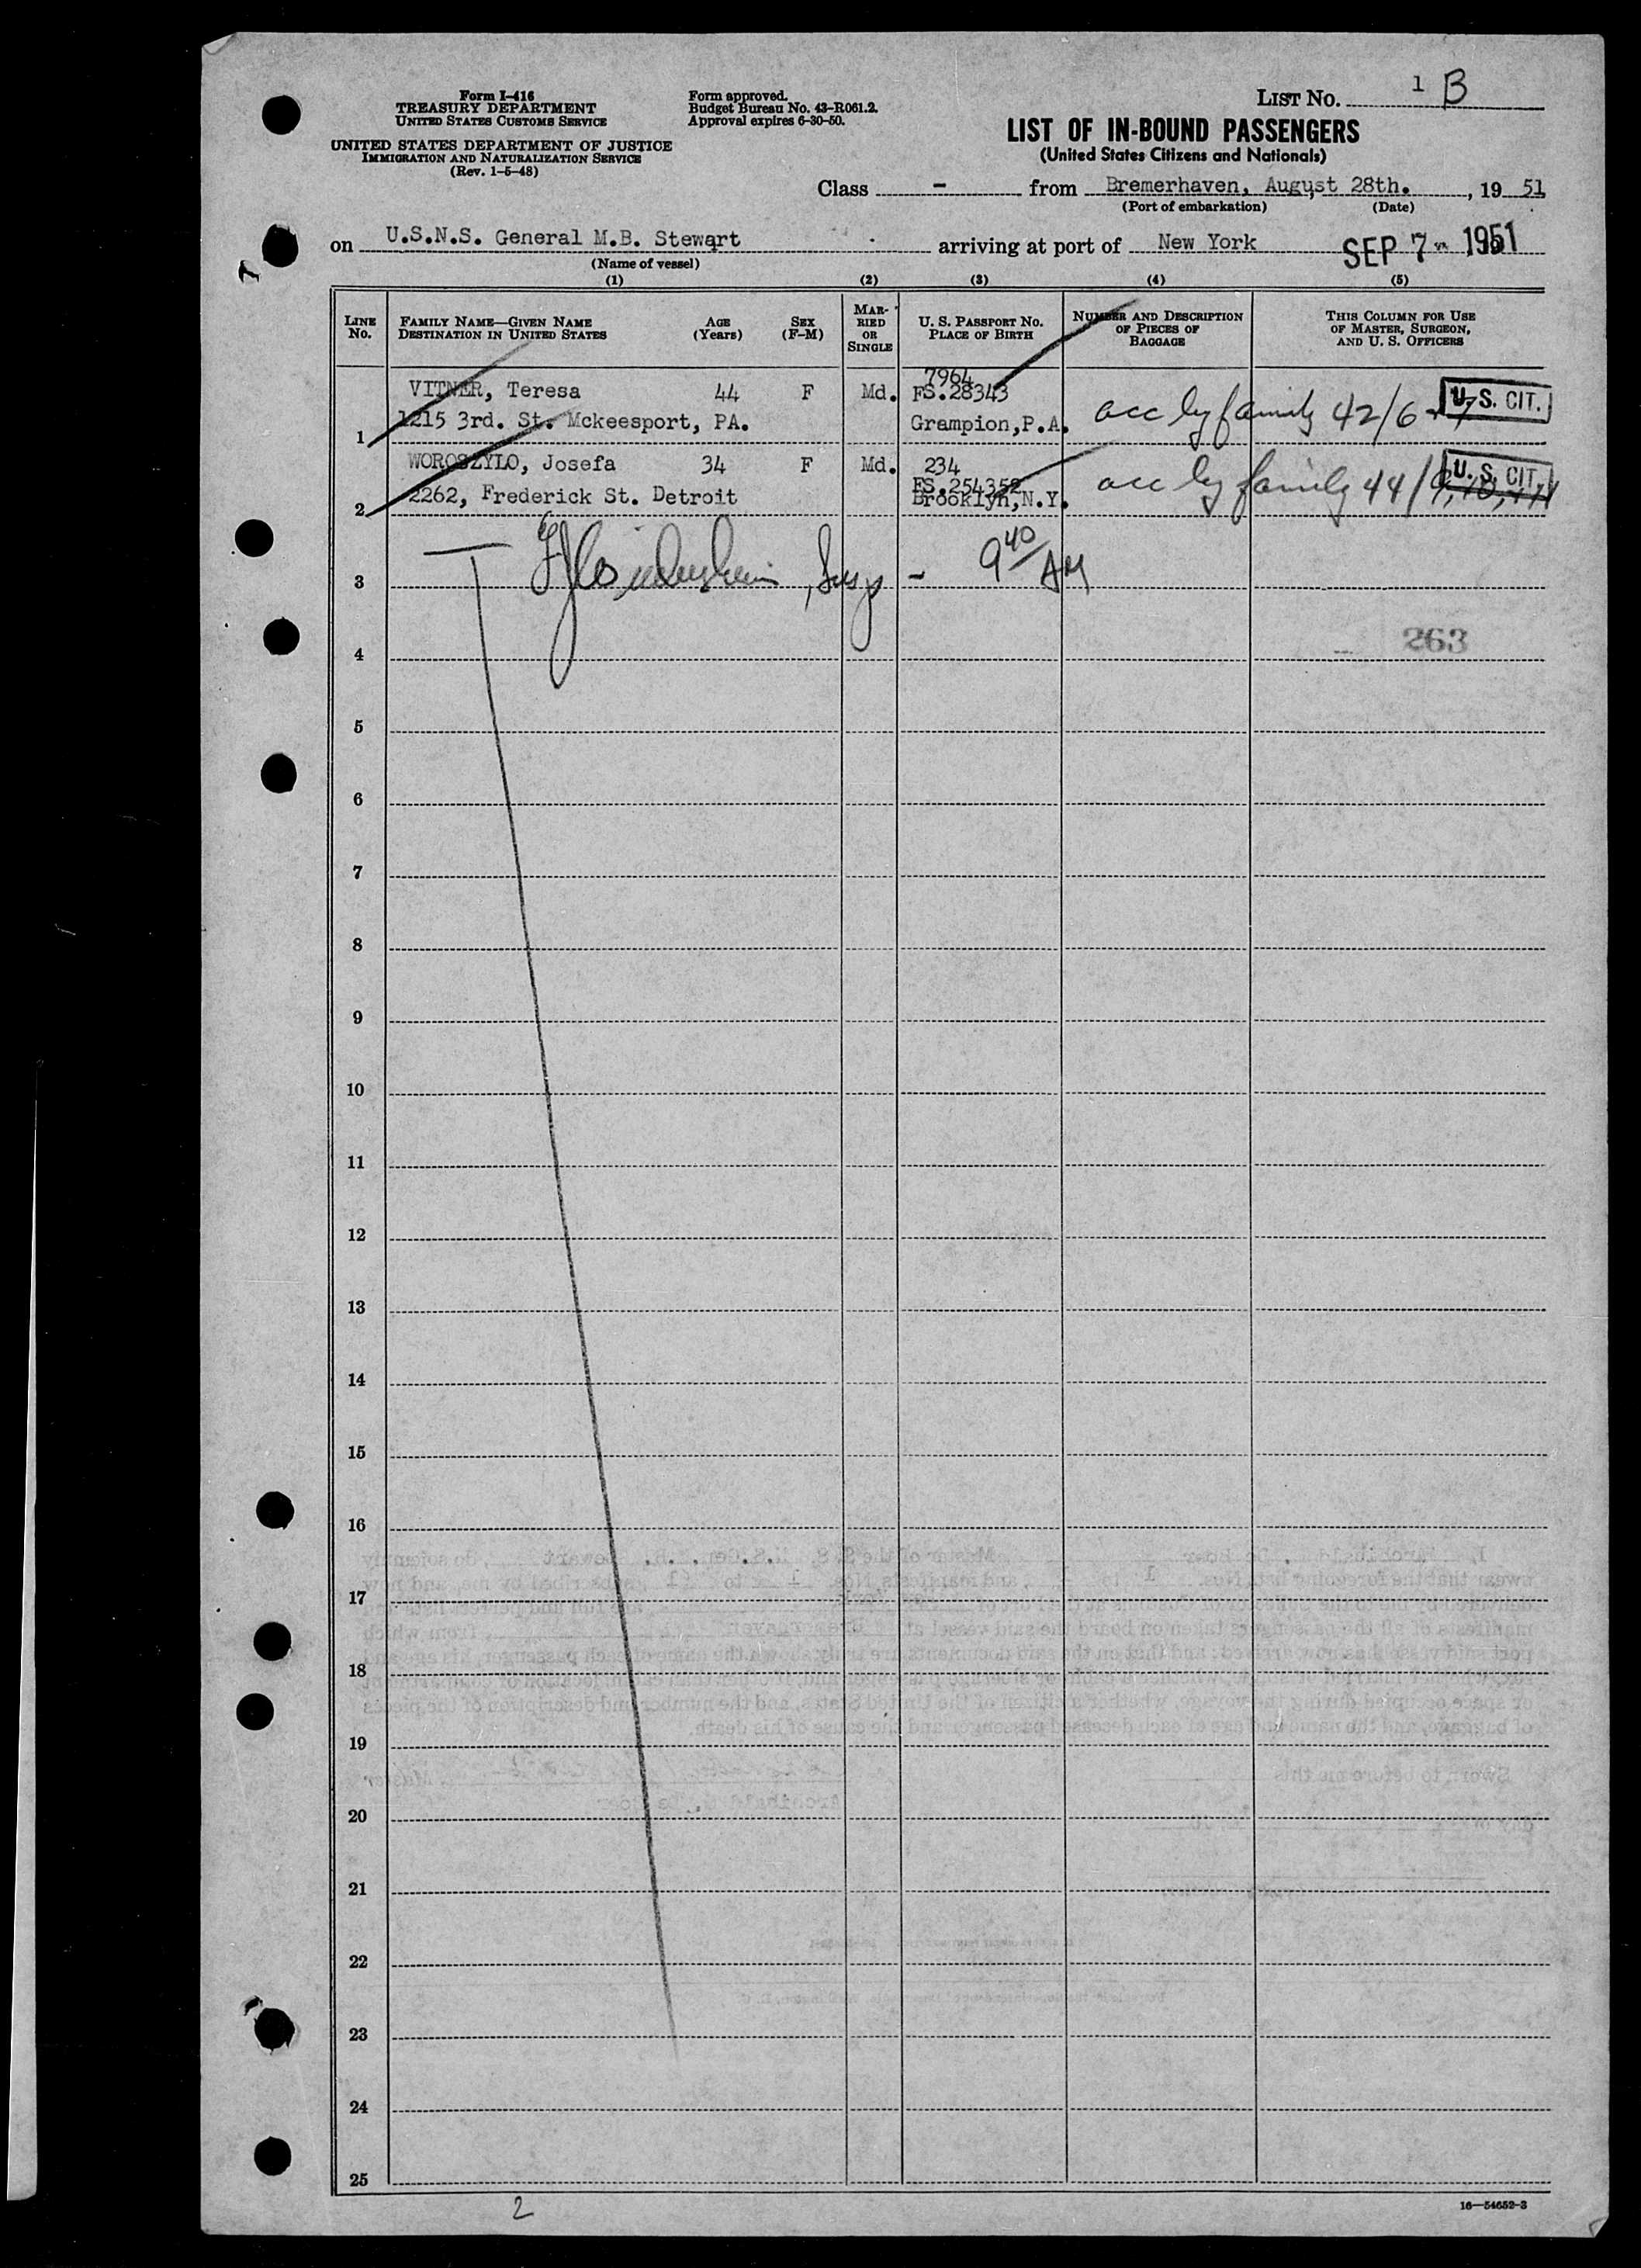 Form I-416
TREASURY DEPARTMENT
UNITED STATES CUSTOMS SERVICE
UNITED STATES DEPARTMENT OF JUSTICE
IMMIGRATION AND NATURALIZATION SERVICE
(Rev. 1-5-48)
Form approved.
Budget Bureau No. 43-R061.2.
Approval expires 6-30-50.
LIST NO. 1 B
LIST OF IN-BOUND PASSENGERS
(United States Citizens and Nationals)
Class - from Bremerhaven, August 28th. , 19 51
(Port of embarkation) (Date)
on U.S.N.S. General M.B. Stewart arriving at port of New York SEP 7 1951
(Name of vessel)
(1) (2) (3) (4) (5)
LINE NO.
FAMILY NAME—GIVEN NAME
DESTINATION IN UNITED STATES
AGE
(Years)
SEX
(F-M)
MAR-
RIED
OR
SINGLE
U. S. PASSPORT NO.
PLACE OF BIRTH
NUMBER AND DESCRIPTION
OF PIECES OF
BAGGAGE
THIS COLUMN FOR USE
OF MASTER, SURGEON,
AND U. S. OFFICERS
7964
VITNER, Teresa 44 F Md. FS.28343 U.S. CIT.
1215 3rd. St. Mckeesport, PA. Grampion,P.A. acc by family 42/6 + 7
1
WOROSZYLO, Josefa 34 F Md. 234 U.S. CIT.
FS.254352
2262, Frederick St. Detroit Brooklyn,N.Y. acc by family 44/9,10,+11
2
9 40 AM
3
263
4
5
6
7
8
9
10
11
12
13
14
15
16
17
18
19
20
21
22
23
24
25
2
16—54652-3